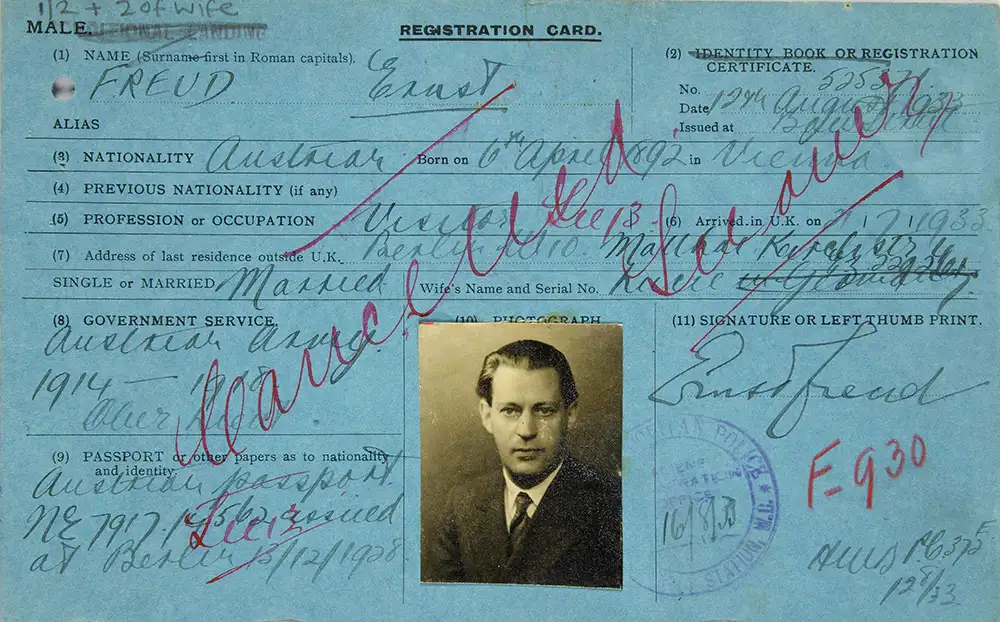 1/2 + 2 of wife
MALE.
REGISTRATION CARD.
(1) NAME (Surname first in Roman capitals).
FREUD Ernst
(2) IDENTITY BOOK OR REGISTRATION
CERTIFICATE.
No. 525371
Date 12th August 1933
Issued at Bow Street
ALIAS
(3) NATIONALITY Austrian Born on 6th April 1892 in Vienna
(4) PREVIOUS NATIONALITY (if any)
(5) PROFESSION or OCCUPATION Visitor (6) Arrived in U.K. on 7/1933
See 13.
(7) Address of last residence outside U.K. Berlin
SINGLE or MARRIED Married Wife's Name and Serial No. Lucie
Cancelled
See
(8) GOVERNMENT SERVICE.
Austrian Army.
1914 — 1918
(10) PHOTOGRAPH
(11) SIGNATURE OR LEFT THUMB PRINT.
Ernst Freud
(9) PASSPORT or other papers as to nationality
and identity.
Austrian passport.
issued
at Berlin 15/12/1928
See 13
POLICE
STATION, W.C.
16/8/33
F-930
12/8/33